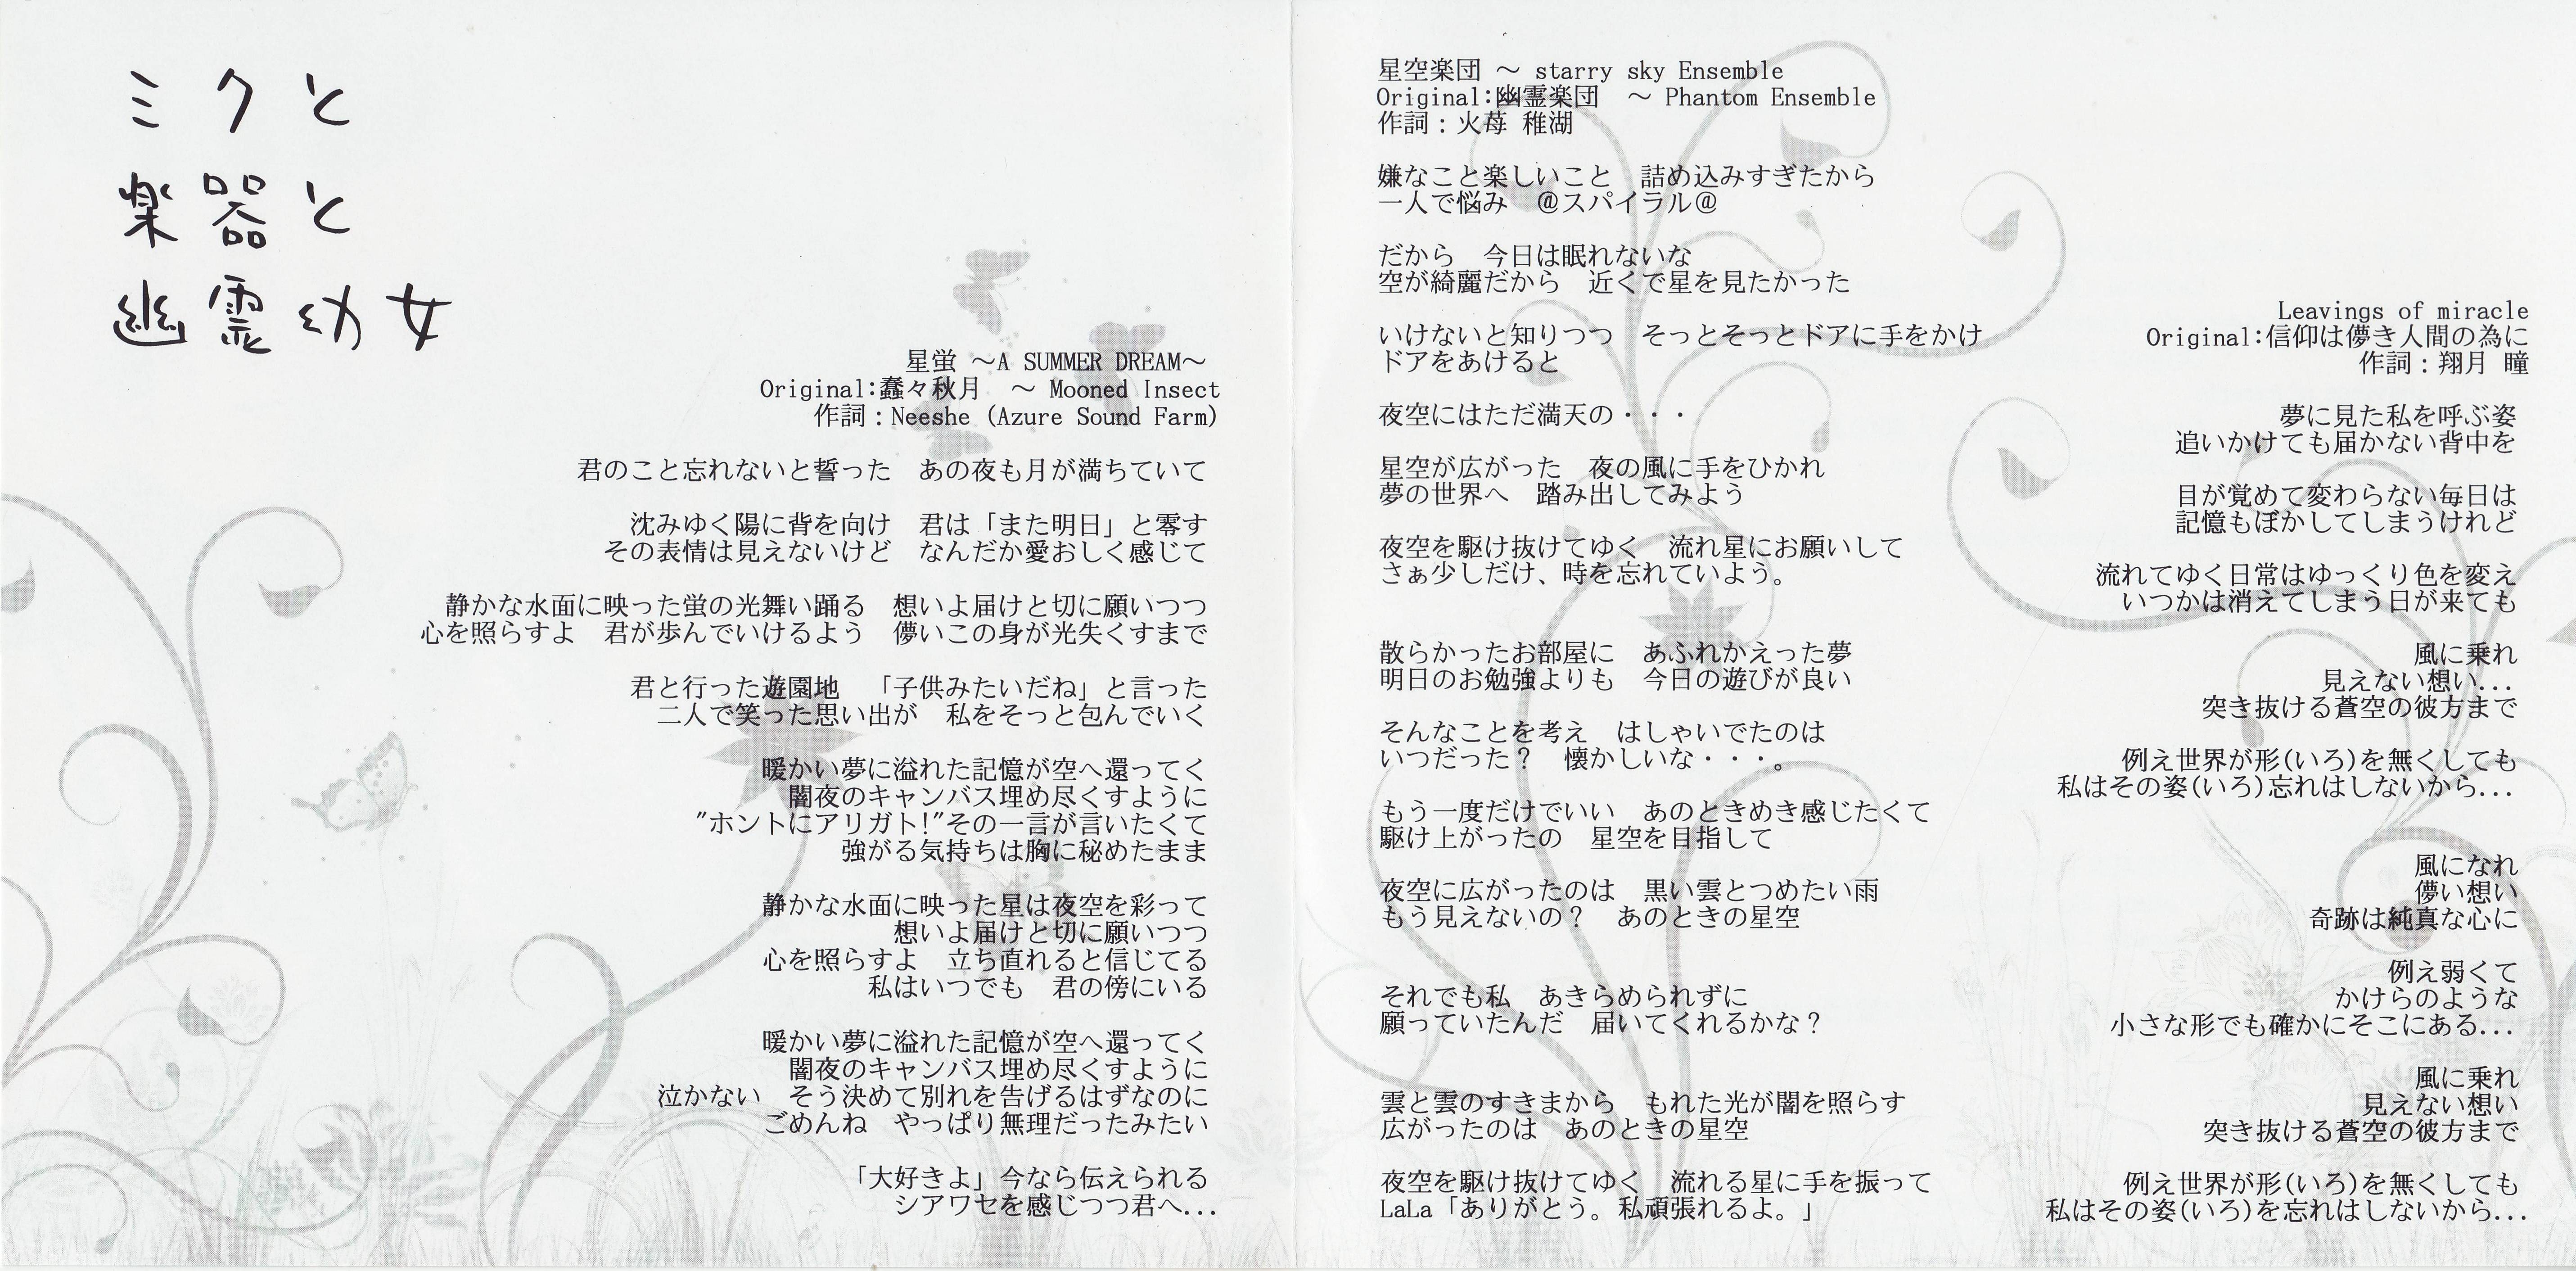 ミクと
楽器と
幽霊幼女
星蛍 ～A SUMMER DREAM～
Original:蠢々秋月　～ Mooned Insect
作詞：Neeshe (Azure Sound Farm)
君のこと忘れないと誓った　あの夜も月が満ちていて
沈みゆく陽に背を向け　君は「また明日」と零す
その表情は見えないけど　なんだか愛おしく感じて
静かな水面に映った蛍の光舞い踊る　想いよ届けと切に願いつつ
心を照らすよ　君が歩んでいけるよう　儚いこの身が光失くすまで
君と行った遊園地　「子供みたいだね」と言った
二人で笑った思い出が　私をそっと包んでいく
暖かい夢に溢れた記憶が空へ還ってく
闇夜のキャンバス埋め尽くすように
"ホントにアリガト!"その一言が言いたくて
強がる気持ちは胸に秘めたまま
静かな水面に映った星は夜空を彩って
想いよ届けと切に願いつつ
心を照らすよ　立ち直れると信じてる
私はいつでも　君の傍にいる
暖かい夢に溢れた記憶が空へ還ってく
闇夜のキャンバス埋め尽くすように
泣かない　そう決めて別れを告げるはずなのに
ごめんね　やっぱり無理だったみたい
「大好きよ」今なら伝えられる
シアワセを感じつつ君へ...
星空楽団 ～ starry sky Ensemble
Original:幽霊楽団　～ Phantom Ensemble
作詞：火苺 稚湖
嫌なこと楽しいこと　詰め込みすぎたから
一人で悩み　＠スパイラル＠
だから　今日は眠れないな
空が綺麗だから　近くで星を見たかった
いけないと知りつつ　そっとそっとドアに手をかけ
ドアをあけると
夜空にはただ満天の・・・
星空が広がった　夜の風に手をひかれ
夢の世界へ　踏み出してみよう
夜空を駆け抜けてゆく　流れ星にお願いして
さぁ少しだけ、時を忘れていよう。
散らかったお部屋に　あふれかえった夢
明日のお勉強よりも　今日の遊びが良い
そんなことを考え　はしゃいでたのは
いつだった？　懐かしいな・・・。
もう一度だけでいい　あのときめき感じたくて
駆け上がったの　星空を目指して
夜空に広がったのは　黒い雲とつめたい雨
もう見えないの？　あのときの星空
それでも私　あきらめられずに
願っていたんだ　届いてくれるかな？
雲と雲のすきまから　もれた光が闇を照らす
広がったのは　あのときの星空
夜空を駆け抜けてゆく　流れる星に手を振って
LaLa「ありがとう。私頑張れるよ。」
Leavings of miracle
Original:信仰は儚き人間の為に
作詞：翔月 瞳
夢に見た私を呼ぶ姿
追いかけても届かない背中を
目が覚めて変わらない毎日は
記憶もぼかしてしまうけれど
流れてゆく日常はゆっくり色を変え
いつかは消えてしまう日が来ても
風に乗れ
見えない想い...
突き抜ける蒼空の彼方まで
例え世界が形(いろ)を無くしても
私はその姿(いろ)忘れはしないから...
風になれ
儚い想い
奇跡は純真な心に
例え弱くて
かけらのような
小さな形でも確かにそこにある...
風に乗れ
見えない想い
突き抜ける蒼空の彼方まで
例え世界が形(いろ)を無くしても
私はその姿(いろ)を忘れはしないから...